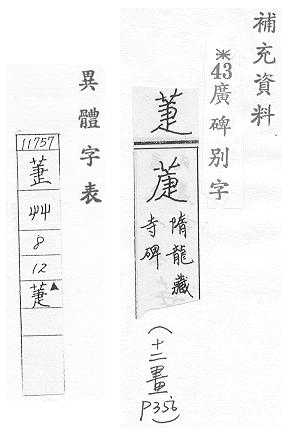 補充資料
※43廣碑別字
萐
隋龍藏
寺碑
(十二畫
P356)
異體字表
11757
萐
艸
8
12